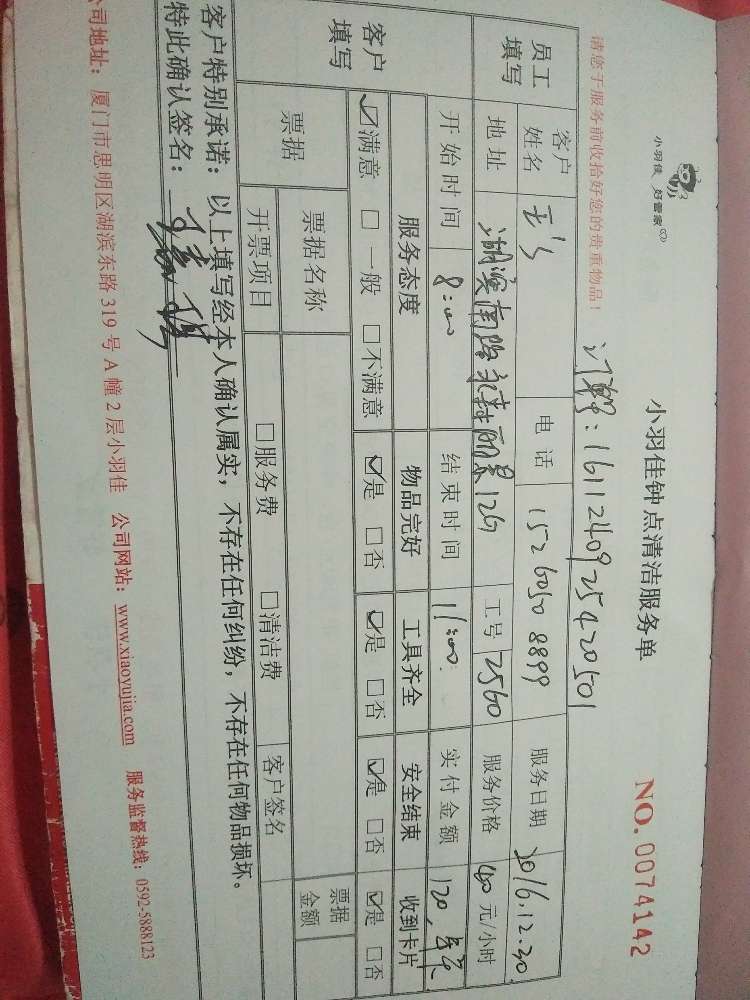 小羽佳 好管家
小羽佳钟点清洁服务单
NO. 0074142
订单号:1611240925420501
请您于服务前收拾好您的贵重物品!
员工填写
客户姓名 电话 15260508899 服务日期 2016.12.30
地址 湖滨南路 丽景12G 工号 2560 服务价格 40 元/小时
开始时间 8:00 结束时间 11:00 实付金额 120.
客户填写
服务态度 物品完好 工具齐全 安全结束 收到卡片
☑满意 □一般 □不满意 ☑是 □否 ☑是 □否 ☑是 □否 ☑是 □否
票据 票据名称 票据金额
开票项目 □服务费 □清洁费 客户签名
客户特别承诺:以上填写经本人确认属实,不存在任何纠纷,不存在任何物品损坏。
特此确认签名:
公司地址:厦门市思明区湖滨东路 319 号 A 幢 2 层小羽佳 公司网站:www.xiaoyujia.com 服务监督热线:0592-5888123